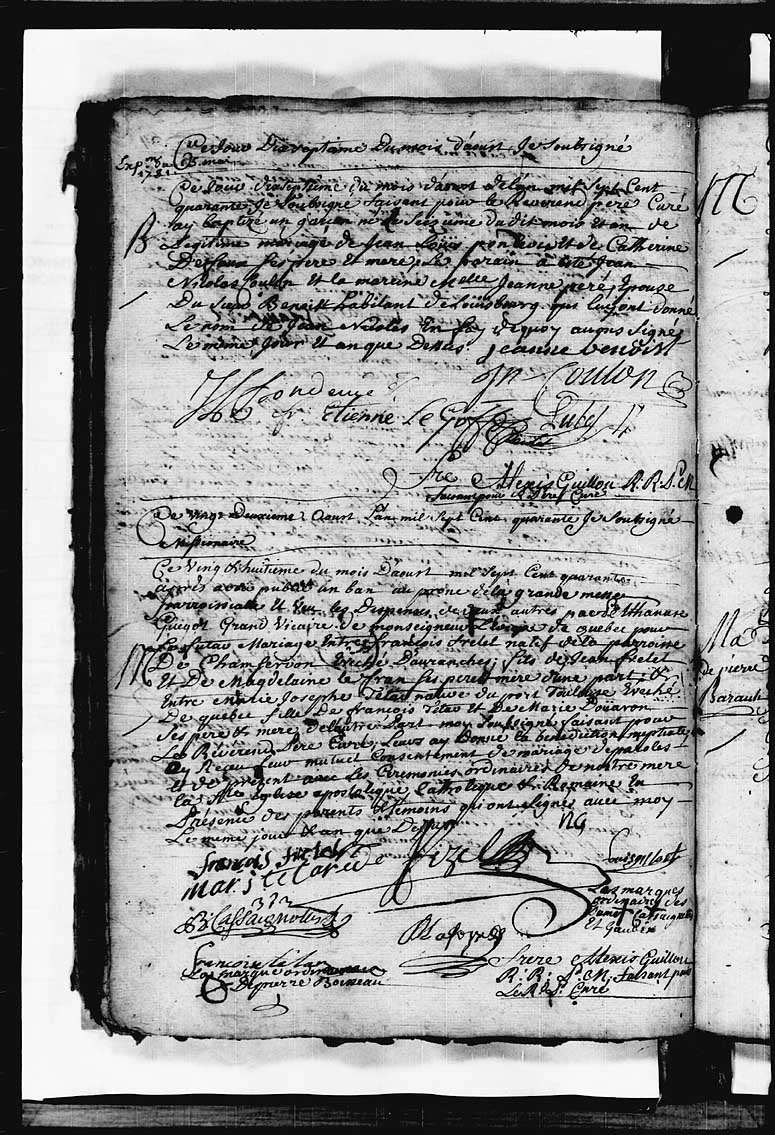 Ce Jour Dixseptieme Du mois d'aoust Je Soubsigné
Exp
1721
Ce Jour dixseptieme du mois d'aoust de l'an mil Sept Cent
quarante Je Soubsigné faisant pour le Reverend pere Curé
ay baptizé un garcon né le Seizieme du dit mois et an de
B
Legitime mariage de Jean Louis et de Catherine
Ses pere et mere, Le parain a été Jean
Nicolas Coulon et la mareine Melle Jeanne peré, Epouse
Du Sieur Benoist habitant de Louisbourg qui luy ont donné
Le nom de Jean Nicolas En foy de quoy avons Signé
Le même Jour et an que Dessus jeanne benoist
jn Coulon
etienne Le Goff
frè Alexis Guillou R. R. S. M
faisant pour le R. P. Curé
Ce Vingt Deuxieme Aoust L'an mil Sept Cent quarante Je Soubsigné
Missionaire
Ce Vingt & huitieme du mois D'aoust mil Sept Cent quarante
après avoir publié un ban au prone de la grande messe
parroissiale et Veu les Dispenses de deux autres par Athanase
Guigot Grand Vicaire de monseigneur L'eveque de quebec pour
Le futur Mariage Entre francois frelet natif de la parroisse
M
De Evêché D'avranches, fils de Jean frelet
Et De Magdelaine le fran Ses pere et mere d'une part, &
Entre Marie Josephe Tetar native du port Toulouse Eveché
De quebec fille De francois Tetar et De Marie Doiaron
Ses pere & mere de L'autre Part, moy Soussigné faisant pour
Le Réverend Père Curé, Leurs ay Donné la benediction nuptiale
ay Recu Leur mutuel Consentement de mariage de paroles
et de présent avec Les Ceremonies ordinaires De nottre mere
la Ste Eglise apostolique Catholique & Romaine En
Présence des parents & témoins qui ont signés avec moy
Le meme jour & an que Dessus
NG
francois frelet
mari tetard
Les marques
ordinaires des
Et Gaudin
francois tetar
La marque ordinaire
De pierre Boisseau
frere Alexis Guillou
R. R. S. M. faisant pour
Le R. P. Curé
M
Ma
de pierre
Barault